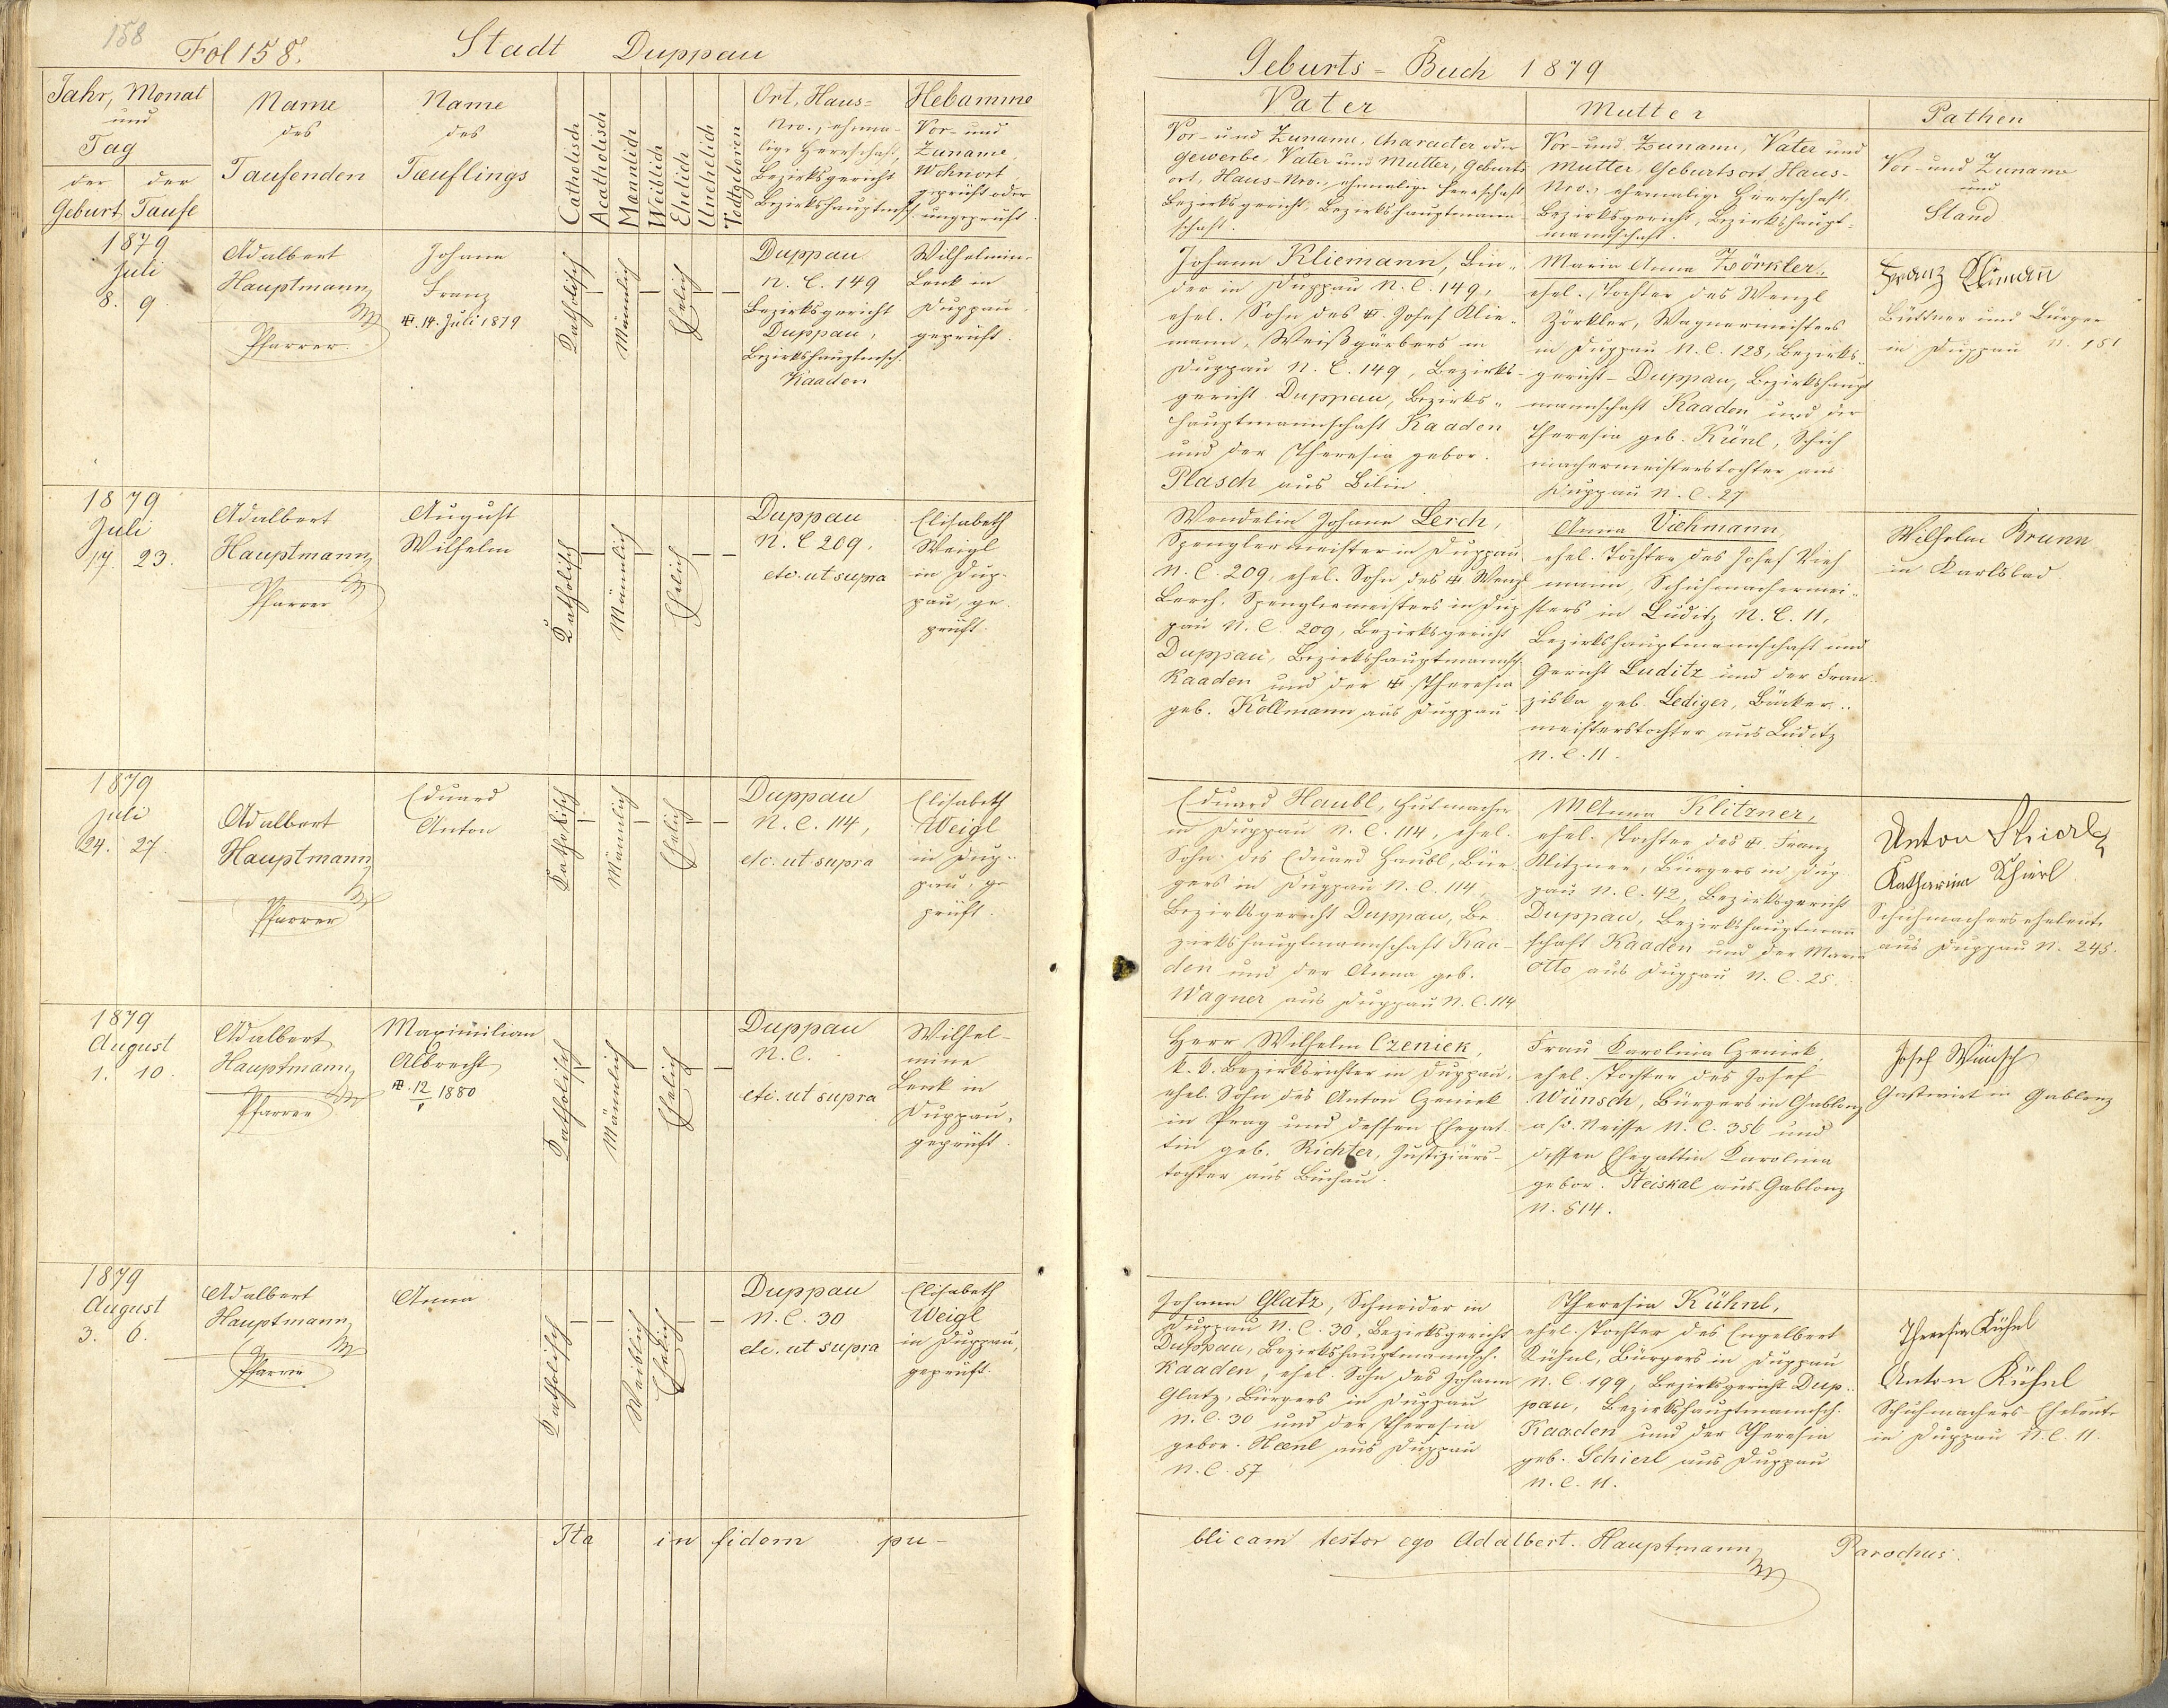 158
Fol 158.
Stadt Duppau
Jahr, Monat
und
Tag
der der
Geburt Taufe
Name
des
Taufenden
Name
des
Tæuflings
Catholisch
Acatholisch
Mænnlich
Weiblich
Ehelich
Unehelich
Todtgeboren
Ort, Haus=
Nro., ehma-
lige Herrschaf.,
Bezirksgericht
Bezirkshauptmsch.
Hebamme
Vor- und
Zuname,
Wohnort,
geprüft oder
ungeprüft.
1879
Juli
8. 9.
Adalbert
Hauptmann
Pfarrer.
Johann
Franz
14. Juli 1879
Katholisch
Männlich
Ehelich
Duppau
N. C. 149
Bezirksgericht
Duppau,
Bezirkshauptmsch.
Kaaden
Wilhelmin-
Lenk in
Duppau,
geprüft.
1879
Juli
17. 23.
Adalbert
Hauptmann
Pfarrer
August
Wilhelm
Katholisch
Männlich
Ehelich
Duppau
N. C 209.
etc. ut supra
Elisabeth
Weigl
in Dup-
pau, ge-
prüft.
1879
Juli
24. 27.
Adalbert
Hauptmann
Pfarrer
Eduard
Anton
Katholisch
Männlich
Ehelich
Duppau
N. C. 114,
etc. ut supra
Elisabeth
Weigl
in Dup-
pau, ge-
prüft.
1879
August
1. 10.
Adalbert
Hauptmann
Pfarrer
Maximilian
Albrecht
12/ 1880
Katholisch
Männlich
Ehelich
Duppau
N. C.
etc. ut supra
Wilhel-
mine
Lenk in
Duppau,
geprüft.
1879
August
3. 6.
Adalbert
Hauptmann
Pfarrer
Anna
Katholisch
Weiblich
Ehelich
Duppau
N. C. 30
etc. ut supra
Elisabeth
Weigl
in Duppau,
geprüft.
Ita in fidem pu-
Geburts = Buch 1879
Vater
Vor- und Zuname, Character oder
Gewerbe, Vater und Mutter, Geburts-
ort, Haus-Nro., ehmalige Herrschaft,
Bezirksgericht, Bezirkshauptmann-
schaft.
Mutter
Vor- und Zuname, Vater und
Mutter, Geburtsort, Haus-
Nro., ehemalige Herrschaft,
Bezirksgericht, Bezirkshaupt-
mannschaft.
Pathen
Vor- und Zuname
und
Stand
Johann Kliemann, Bin-
der in Duppau N. C. 149,
ehel. Sohn des Josef Klie-
mann, Weißgärbers in
Duppau N. C. 149, Bezirks-
gericht Duppau, Bezirks-
hauptmannschaft Kaaden
und der Theresia gebor.
Plasch aus Bilin
Maria Anna Zörkler,
ehel. Tochter des Wenzl
Zörkler, Wagnermeisters
in Duppau N. C. 128, Bezirks-
gericht Duppau, Bezirkshaupt
mannschaft Kaaden und der
Theresia geb. Künl, Schuh
machermeisterstochter aus
Duppau N. C. 27
Franz Klimann
Büttner und Bürger
in Duppau N. 151
Wendelin Johann Lerch,
Spenglermeister in Duppau
N. C 209, ehel. Sohn des Wenzl
Lerch, Spenglermeisters in Dup
pau N. C. 209, Bezirksgericht
Duppau, Bezirkshauptmannsch.
Kaaden und der Theresia
geb. Kollmann aus Duppau
Anna Viehmann
ehel. Tochter des Josef Vieh
mann, Schuhmachermei-
sters in Luditz N. C. 11,
Bezirkshauptmannschaft und
Gericht Luditz und der Fran-
ziska geb. Lediger, Bäcker-
meisterstochter aus Luditz
N. C. 11.
Wilhelm Brunn
in Karlsbad
Eduard Haubl, Hutmacher
in Duppau N. C. 114, ehel.
Sohn des Eduard Haubl, Bür-
gers in Duppau N. C. 114,
Bezirksgericht Duppau, Be-
zirkshauptmannschaft Kaa-
den und der Anna geb.
Wagner aus Duppau N. C. 114
M Anna Klitzner,
ehel. Tochter des Franz
Klitzner, Bürgers in Dup-
pau N. C. 42, Bezirksgericht
Duppau, Bezirkshauptmann
schaft Kaaden und der Maria
Otto aus Duppau N. C. 25.
Anton Schierl
Katharina Schierl
Schuhmacherseheleute
aus Duppau N. 245.
Herr Wilhelm Czeniek,
k. k. Bezirksrichter in Duppau,
ehel. Sohn des Anton Czeniek
in Prag und dessen Ehegat
tin geb. Richter, Justiziärs-
tochter aus Buchau.
Frau Karolina Czeniek,
ehel. Tochter des Josef
Wünsch, Bürgers in Gablonz
a/d. Neisse N. C. 356 und
dessen Ehegattin Karolina
gebor. Neiskal aus Gablonz
N. 514.
Josef Wünsch
Gastwirt in Gablonz
Johann Glatz, Schneider in
Duppau N. C. 30, Bezirksgericht
Duppau, Bezirkshauptmannsch.
Kaaden, ehel. Sohn des Johann
Glatz, Bürgers in Duppau
N. C. 30 und der Theresia
gebor. Hænl aus Duppau
N. C. 57
Theresia Kühnl,
ehel. Tochter des Engelbert
Kühnl, Bürgers in Duppau
N. C. 199, Bezirksgericht Dup-
pau, Bezirkshauptmannsch.
Kaaden und der Theresia
geb. Schierl aus Duppau
N. C. 11.
Theresia Kühnl
Anton Kühnl
Schuhmachers-Eheleute
in Duppau N. C. 11.
blicam testor ego Adalbert. Hauptmann Parochus.